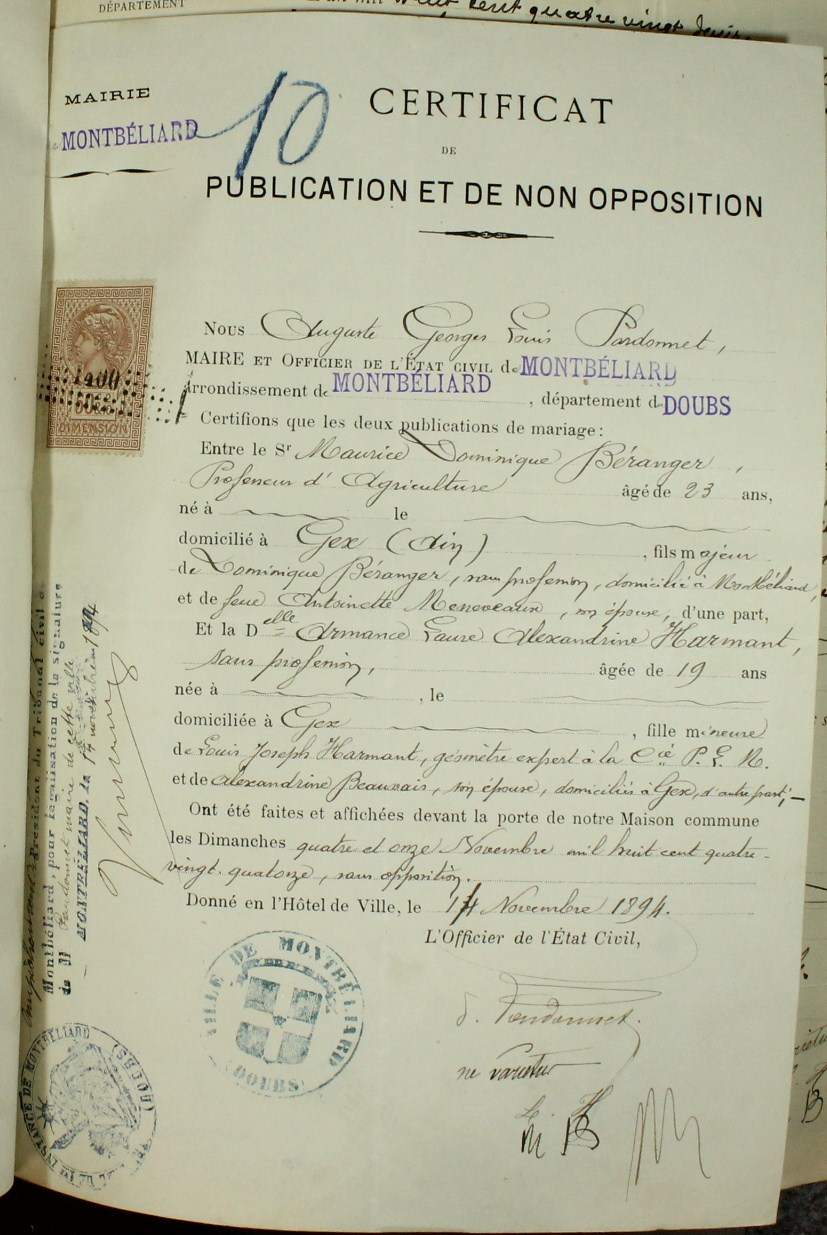 DÉPARTEMENT
huit cent quatre vingt
MAIRIE
MONTBÉLIARD
10
CERTIFICAT
DE
PUBLICATION ET DE NON OPPOSITION
Nous Auguste Georges Louis Pardonnet,
MAIRE ET OFFICIER DE L'ÉTAT CIVIL de MONTBÉLIARD
arrondissement de MONTBÉLIARD, département d DOUBS
Certifions que les deux publications de mariage:
Entre le Sr Maurice Dominique Béranger,
Professeur d'Agriculture âgé de 23 ans,
né à le
domicilié à Gex (Ain), fils majeur
de Dominique Béranger, sans profession, domicilié à Montbéliard,
et de feue Antoinette son épouse, d'une part,
Et la Delle Armance Laure Alexandrine Harmant,
sans profession, âgée de 19 ans
née à , le
domiciliée à Gex , fille mineure
de Louis Joseph Harmant, géomètre expert à la Cie P. L. M.
et de Alexandrine Beauvais, son épouse, domiciliés à Gex, d'autre part;—
Ont été faites et affichées devant la porte de notre Maison commune
les Dimanches quatre et onze Novembre mil huit cent quatre-
vingt-quatorze, sans opposition.
Donné en l'Hôtel de Ville, le 14 Novembre 1894.
L'Officier de l'État Civil,
Pardonnet
ne varietur
VILLE DE MONTBÉLIARD
(DOUBS)
DIMENSION
Président du Tribunal civil
Montbéliard, pour légalisation de la signature
de M Pardonnet maire de cette ville
MONTBÉLIARD, le 14 novembre 1894
INSTANCE DE MONTBÉLIARD (DOUBS)